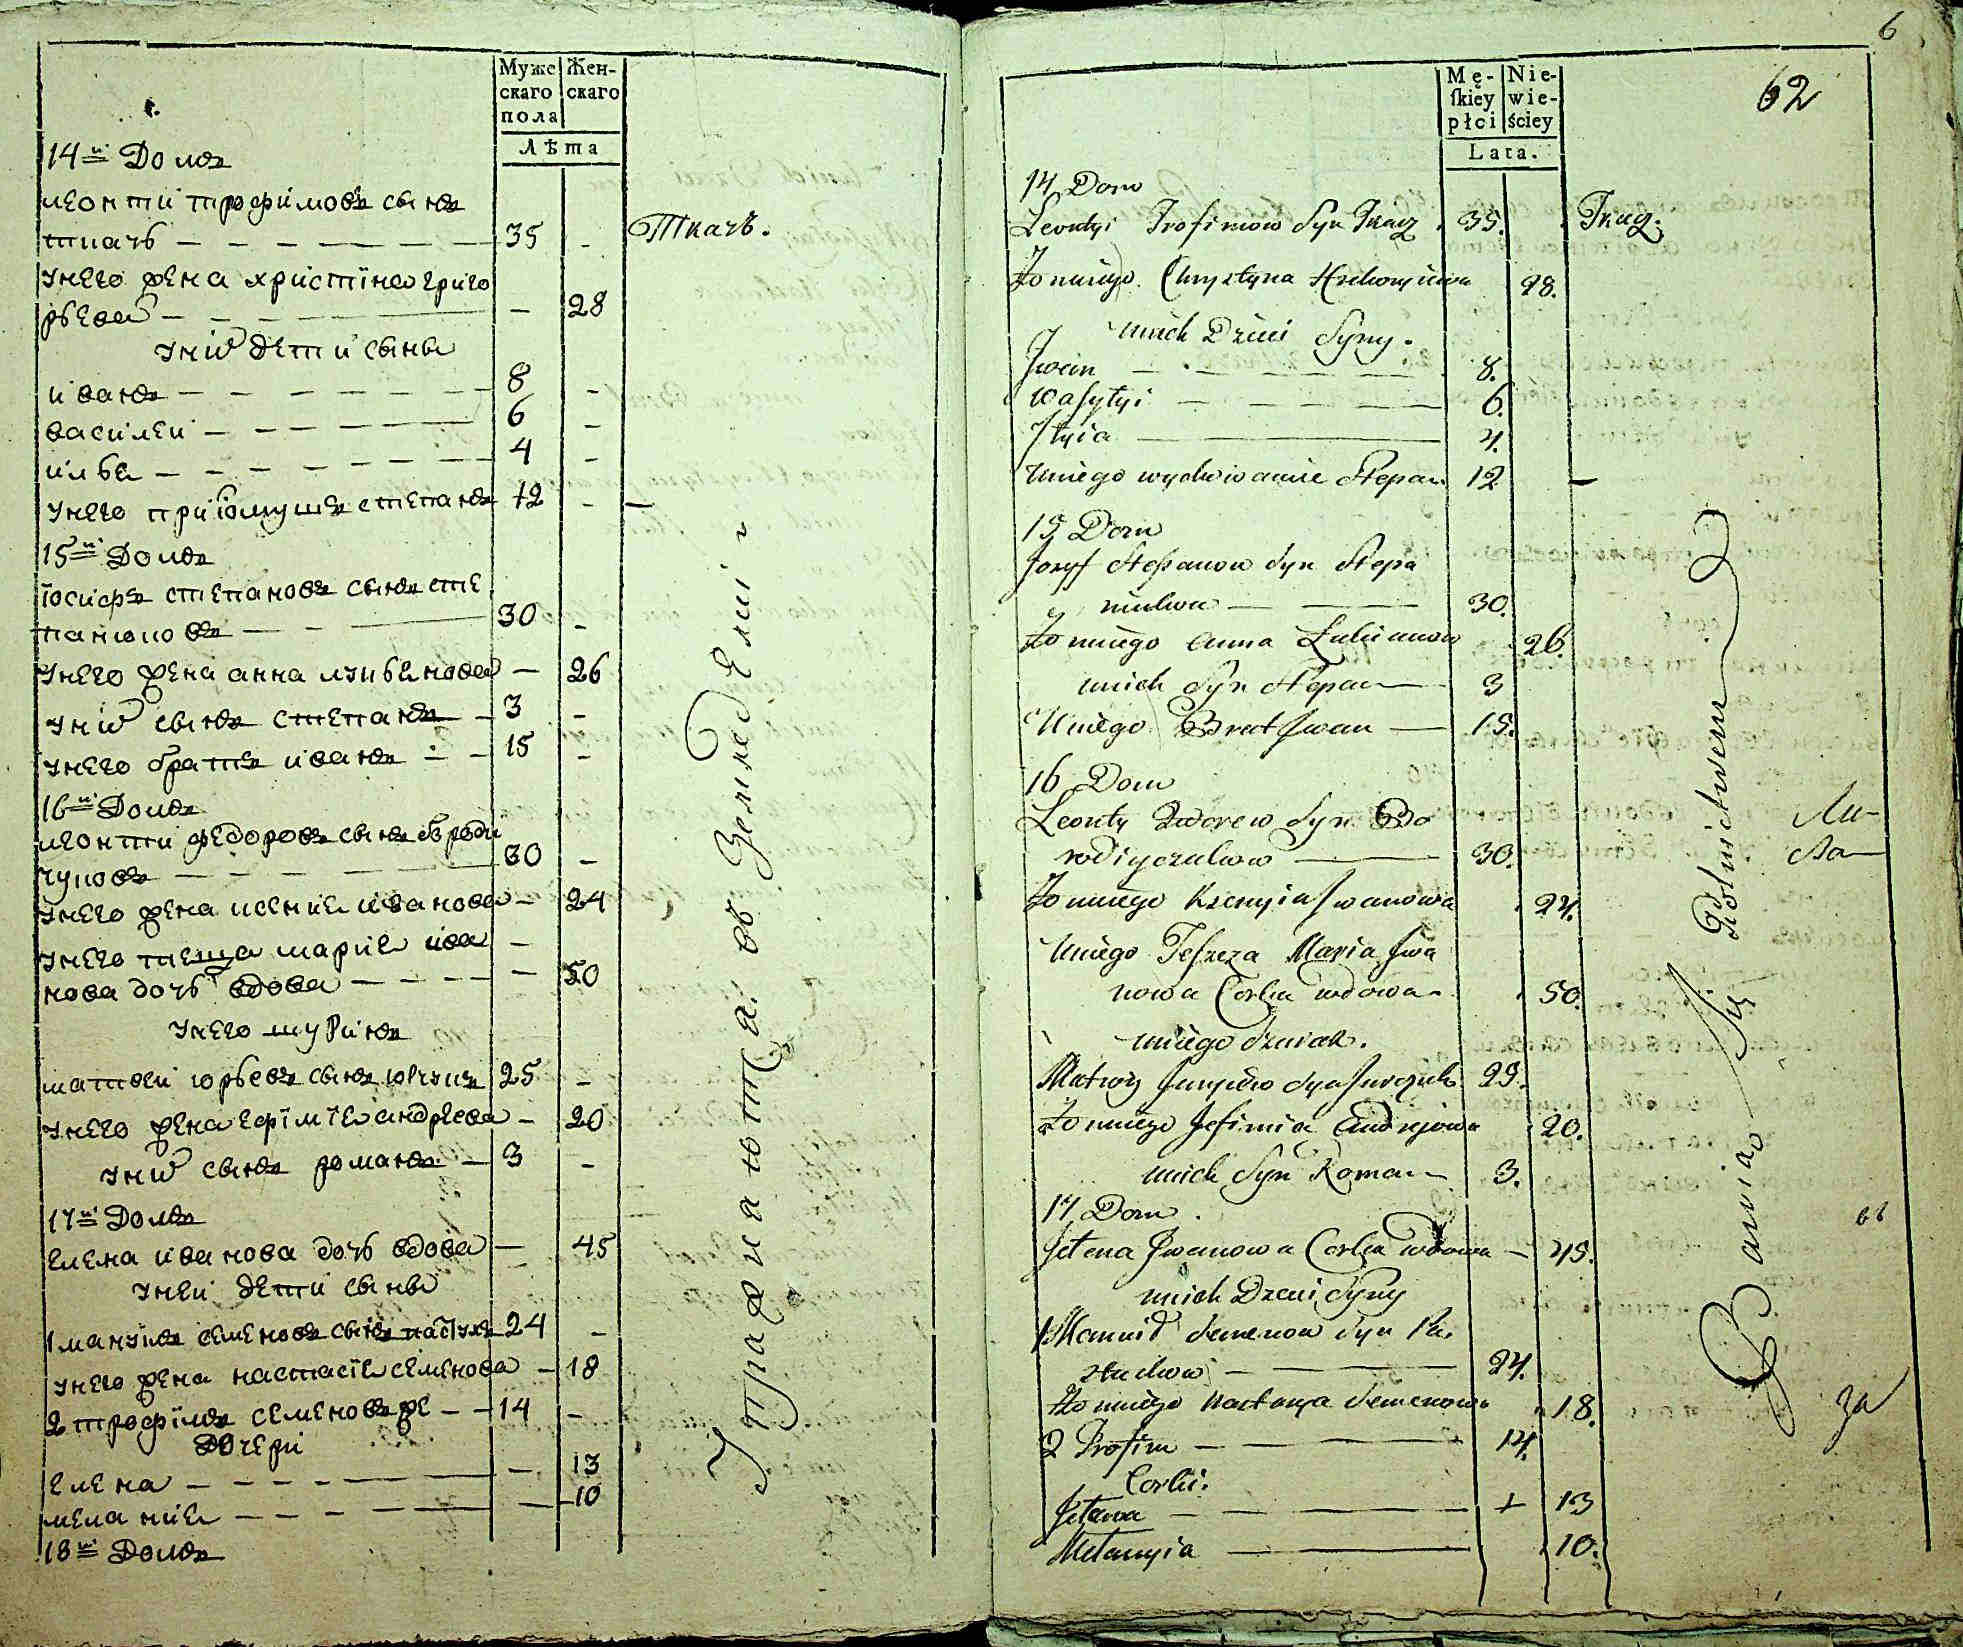 Муже Жен-
скаго скаго
пола
Лѣта
14й Домъ
леонти трофимовъ сынъ
ткачь 35 - Ткачъ.
унего жена христина григо
рьева - 28
уних дети сыны
иванъ 8 -
василеи 6 -
илья 4 -
унего приіомушъ степанъ 12 - -
15й Домъ
іосифъ степановъ сынъ сте
панюковъ 30 -
унего жена анна лукьянова - 26
уних сынъ степанъ 3 -
унего братъ иванъ 15 -
16й Домъ
леонти федоровъ сынъ бороди
чуковъ 30 -
унего жена ксения иванова - 24
унего теща мария ива -
нова дочь вдова - 50
унего шуринъ
матвеи юрьевъ сынъ юрчукъ 25 -
унего жена ефимия андреева - 20
уних сынъ романъ 3 -
17й Домъ
елена иванова дочь вдова - 45
унеи дети сыны
1 мануилъ семеновъ сынъ пастухъ 24 -
унего жена настасія семенова - 18
2 трофимъ семеновъ же 14 -
дочери
елена - 13
мелания - 10
18й Домъ
Упражняются въ Земледелии
6
62
Mę- Nie-
ſkiéy wie-
płci ściey
Lata.
14 Dom
Leontyi Trofimow Syn Tkacz 35. Tkacz.
Żo nuiego Chrystyna Hrehoryiewa 28.
unich Dzieci Syny.
Iwan 8.
Wasylyi 6.
Ilyia 4.
Uniego wychowanie Stepan 12 -
15 Dom
Jozyf Stepanow Syn Stepa
niukow 30.
Żo nuiego Anna Łukianow 26.
unich Syn Stepan 3
Uniego Brat Iwan 15.
16 Dom
Leonty Fedorow Syn Bo
rodiyczukow 30.
Żo nuiego Ksenyia Iwanowa 24.
Uniego Teszcza Maria Iwa
nowa Corka wdowa 50.
uniego Szuriak.
Matwiy Juryiew Syn Jurczuk 25.
Żo nuiego Jefimia Andrejowa 20.
unich Syn Roman 3.
17 Dom
Jelena Iwanowa Corka wdowa - 45.
unich Dzieci Syny
1 Manuił Semenow Syn Pa
stuchow 24.
Żo nuiego Nastazya Semenowa 18.
2 Trofim 14.
Corki.
Jelena + 13
Melanyia 10.
Bawią Się Rolnictwem
Ли-
ста
въ
За